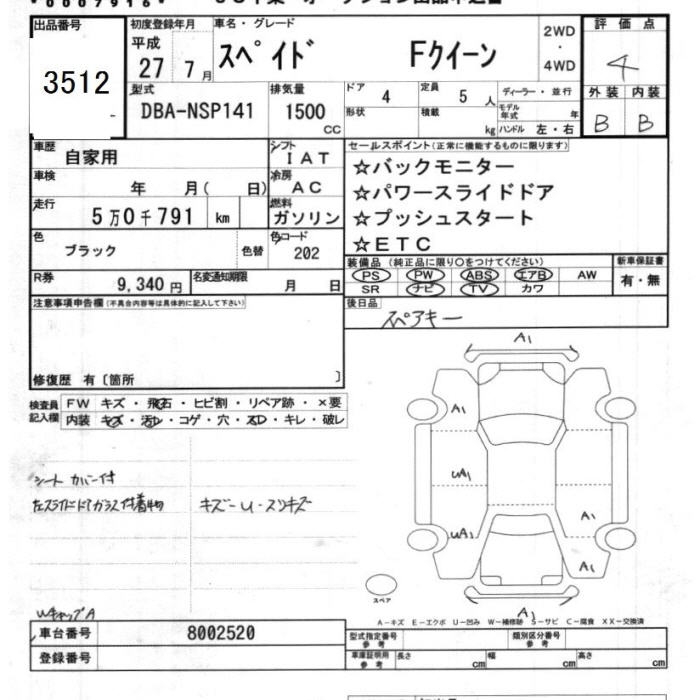 出品番号 初度登録年月 車名・グレード 2WD・4WD 評価点
3512 平成27 7月 スペイド Fクイーン 4
型式 排気量 ドア 定員 ディーラー・並行 外装 内装
DBA-NSP141 1500CC 4 5人 モデル年式 年 B B
形状 積載 kg ハンドル 左・右
車歴 自家用 シフト IAT セールスポイント(正常に機能するものに限ります)
車検 年 月( 日) 冷房 AC ☆バックモニター
☆パワースライドドア
走行 5万0千791 km 燃料 ガソリン ☆プッシュスタート
☆ETC
色 ブラック 色替 色コード 202
装備品(純正品に限り○をつけてください) 新車保証書
R券 9,340円 名変通知期限 月 日 PS PW ABS エアB AW 有・無
SR ナビ TV カワ
注意事項申告欄(不具合内容等は具体的に記入して下さい) 後日品
スペアキー
修復歴 有〔箇所 〕
検査員記入欄 FW キズ・飛石・ヒビ割・リペア跡・×要
内装 キズ・汚レ・コゲ・穴・スレ・キレ・破レ
A1
A1
シートカバー付 UA1
左スライドドアガラス付着物 キズーU・スリキズ
A1
UA1
A1
スペア
A1
WキャップA
A－キズ E－エクボ U－凹み W－補修跡 S－サビ C－腐食 XX－交換済
車台番号 8002520 型式指定番号参考 類別区分番号参考
登録番号 車庫証明用参考 長さ cm 幅 cm 高さ cm